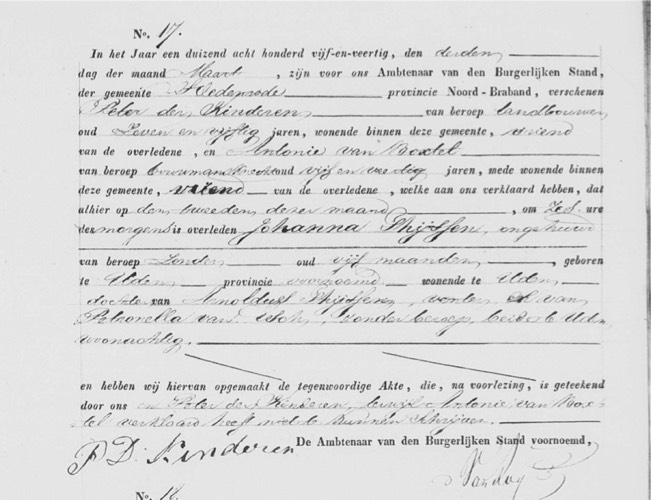 No. 17.
In het Jaar een duizend acht honderd vijf-en-veertig, den derden
dag der maand Maart, zijn voor ons Ambtenaar van den Burgerlijken Stand,
der gemeente St Oedenrode provincie Noord-Braband, verschenen
Peter der Kinderen van beroep landbouwer
oud zeven en vijftig jaren, wonende binnen deze gemeente, vriend
van de overledene, en Antonie van Boxtel
van beroep bouwmansknecht oud vijf en veertig jaren, mede wonende binnen
deze gemeente, vriend van de overledene, welke aan ons verklaard hebben, dat
alhier op den tweeden dezer maand, om zes ure
des morgens is overleden Johanna Thijssen, ongehuwd
van beroep zonder oud vijf maanden, geboren
te Uden provincie voornoemd wonende te Uden
dochter van Arnoldus Thijssen, en van
Petronella van, zonder beroep, beide te Uden
woonachtig.
en hebben wij hiervan opgemaakt de tegenwoordige Akte, die, na voorlezing, is geteekend
door ons en Peter der Kinderen, terwijl Antonie van Box-
tel verklaard heeft niet te kunnen schrijven.
P D Kinderen De Ambtenaar van den Burgerlijken Stand voornoemd,
No. 18.